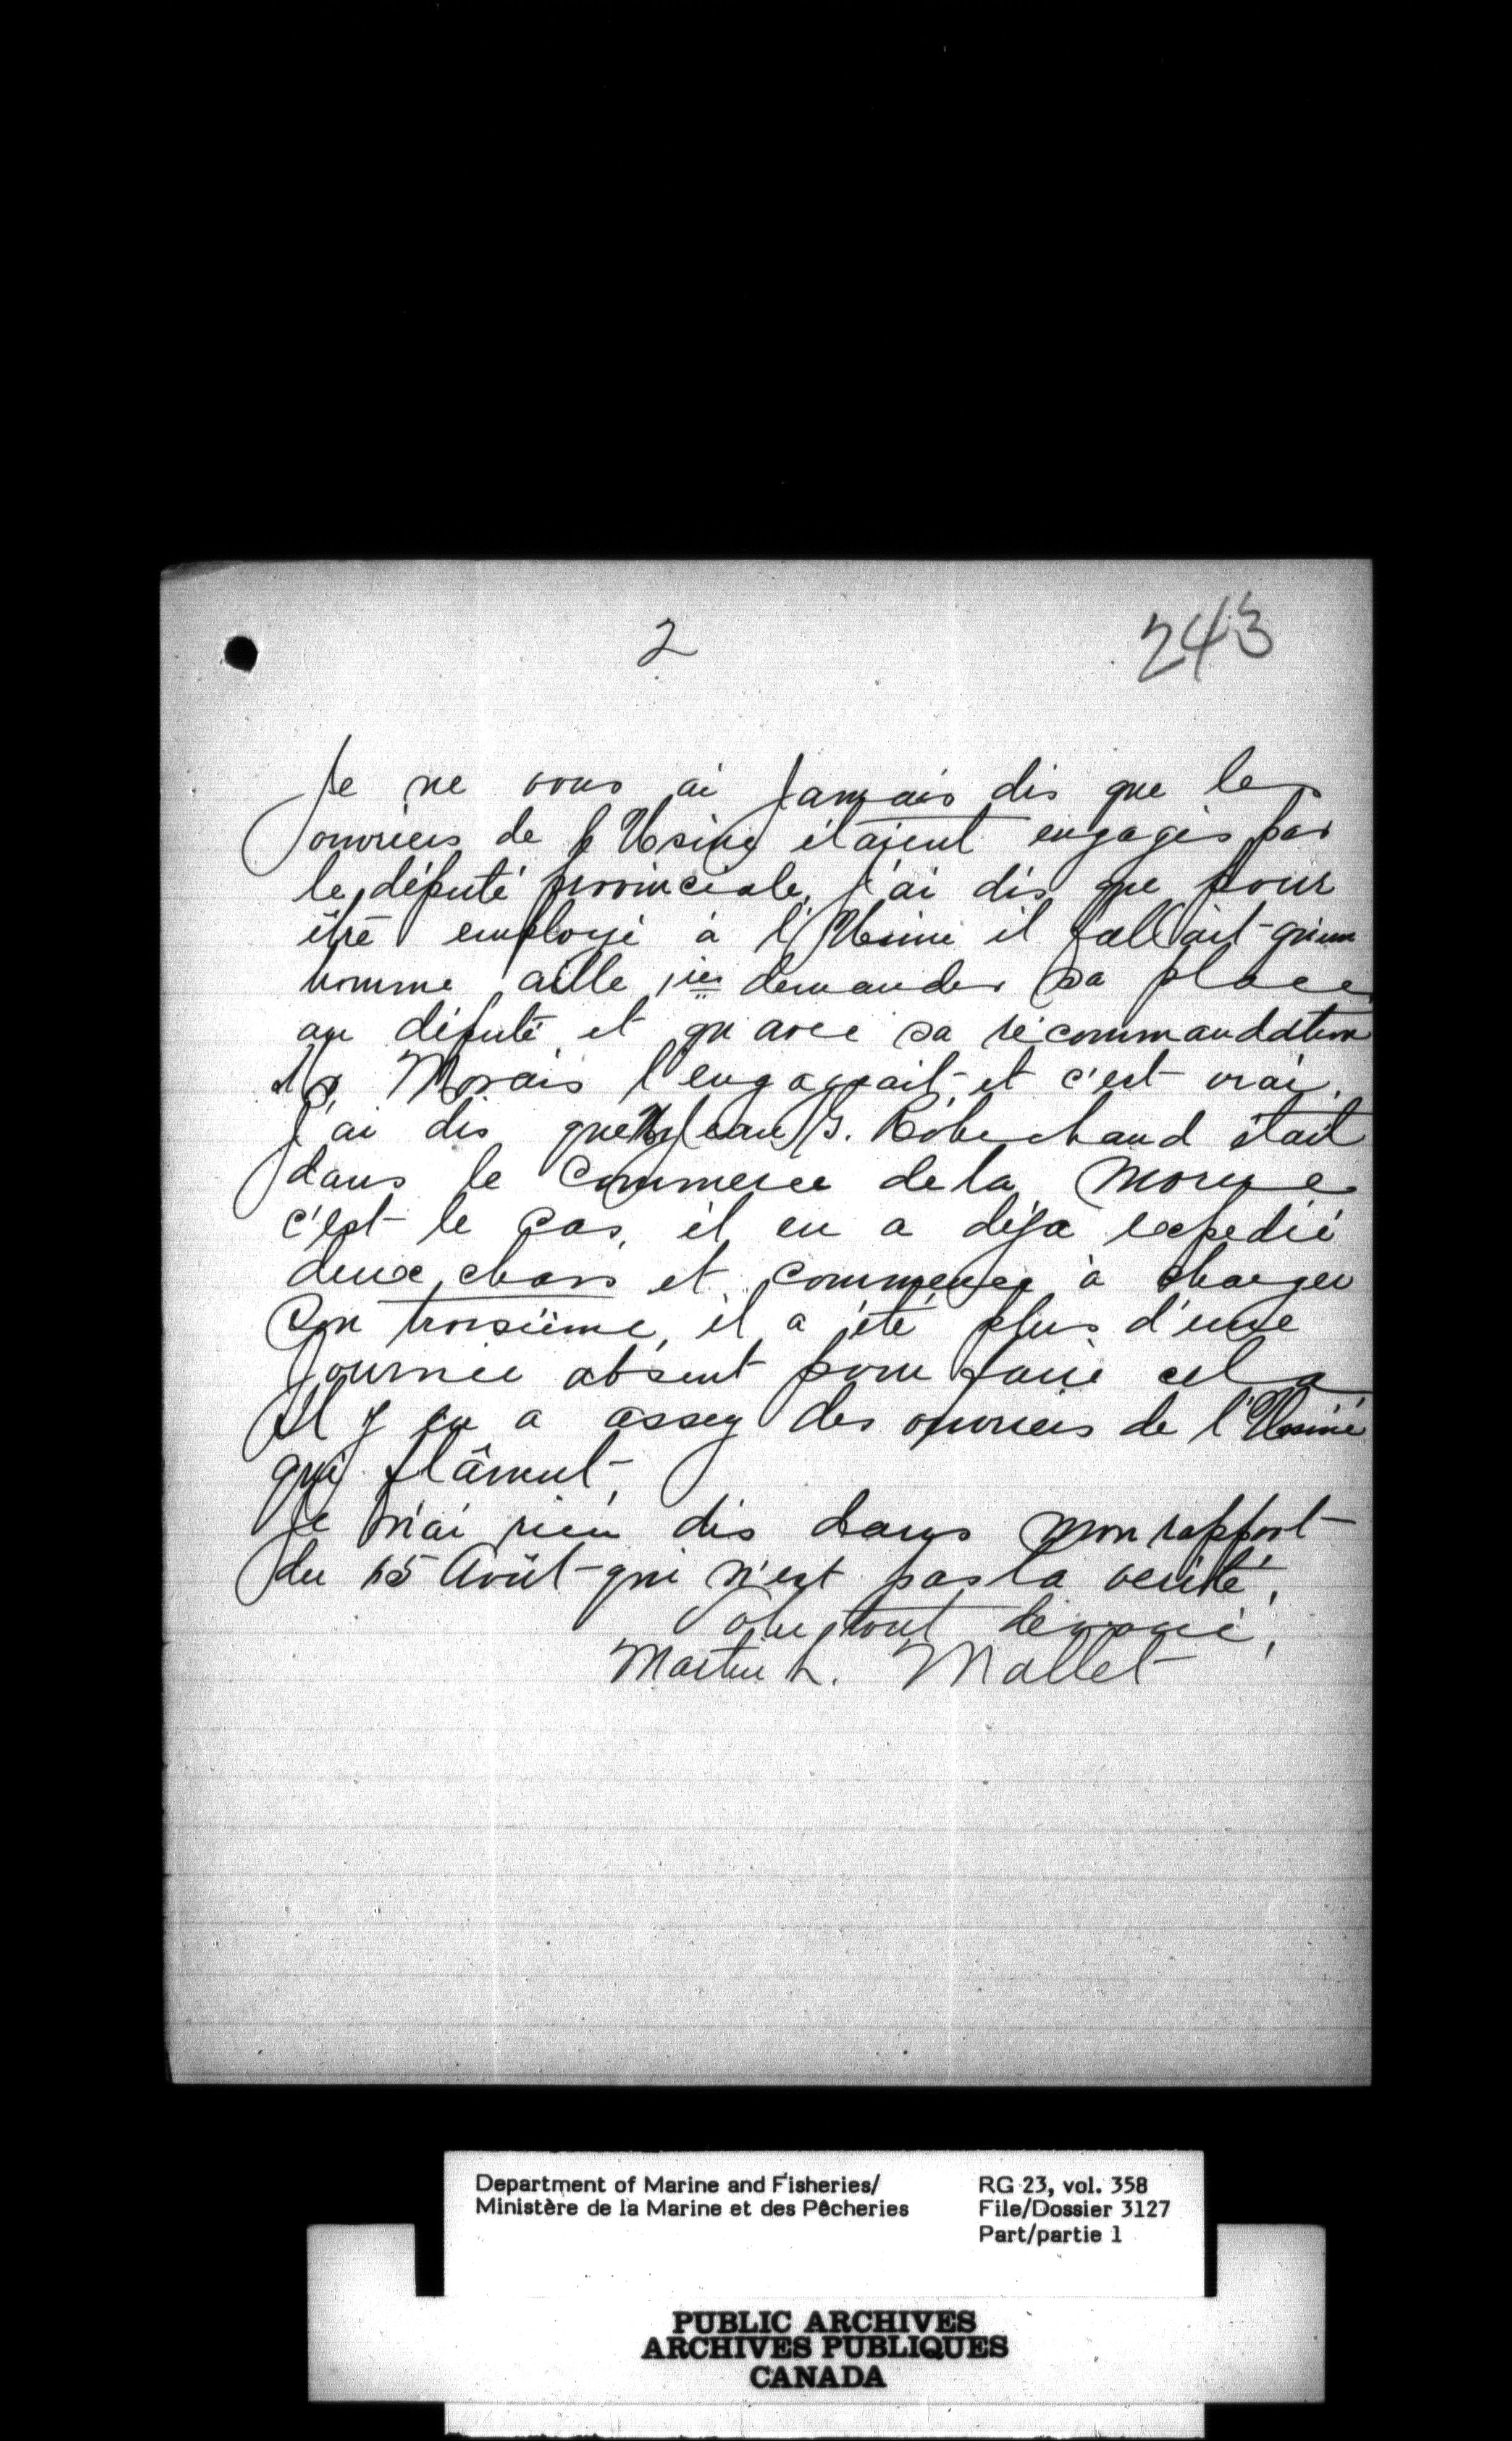 2
243
Je ne vous ai Jamais dis que les
ouvriers de l'Usine étaient engagés par
le député provinciale, j'ai dis que pour
être employé à l'Usine il fallait qu'un
homme aille demander sa place
au député et qu'avec sa récommandation
Mr. Morais l'engageait et c'est vrai.
J'ai dis que Mr Jean G. Robichaud était
dans le Commerce de la Morue
c'est le cas, il en a déja expedié
deux chars et commence à charger
son troisième, il a été plus d'une
Journée absent pour faire cela
Il y en a assez des ouvriers de l'Usine
qui flânent.
Je n'ai rien dis dans mon rapport
du 15 Août qui n'est pas la verité,
Votre tout dévoué,
Martin L. Mallet
Department of Marine and Fisheries/
Ministère de la Marine et des Pêcheries
RG 23, vol. 358
File/Dossier 3127
Part/partie 1
PUBLIC ARCHIVES
ARCHIVES PUBLIQUES
CANADA